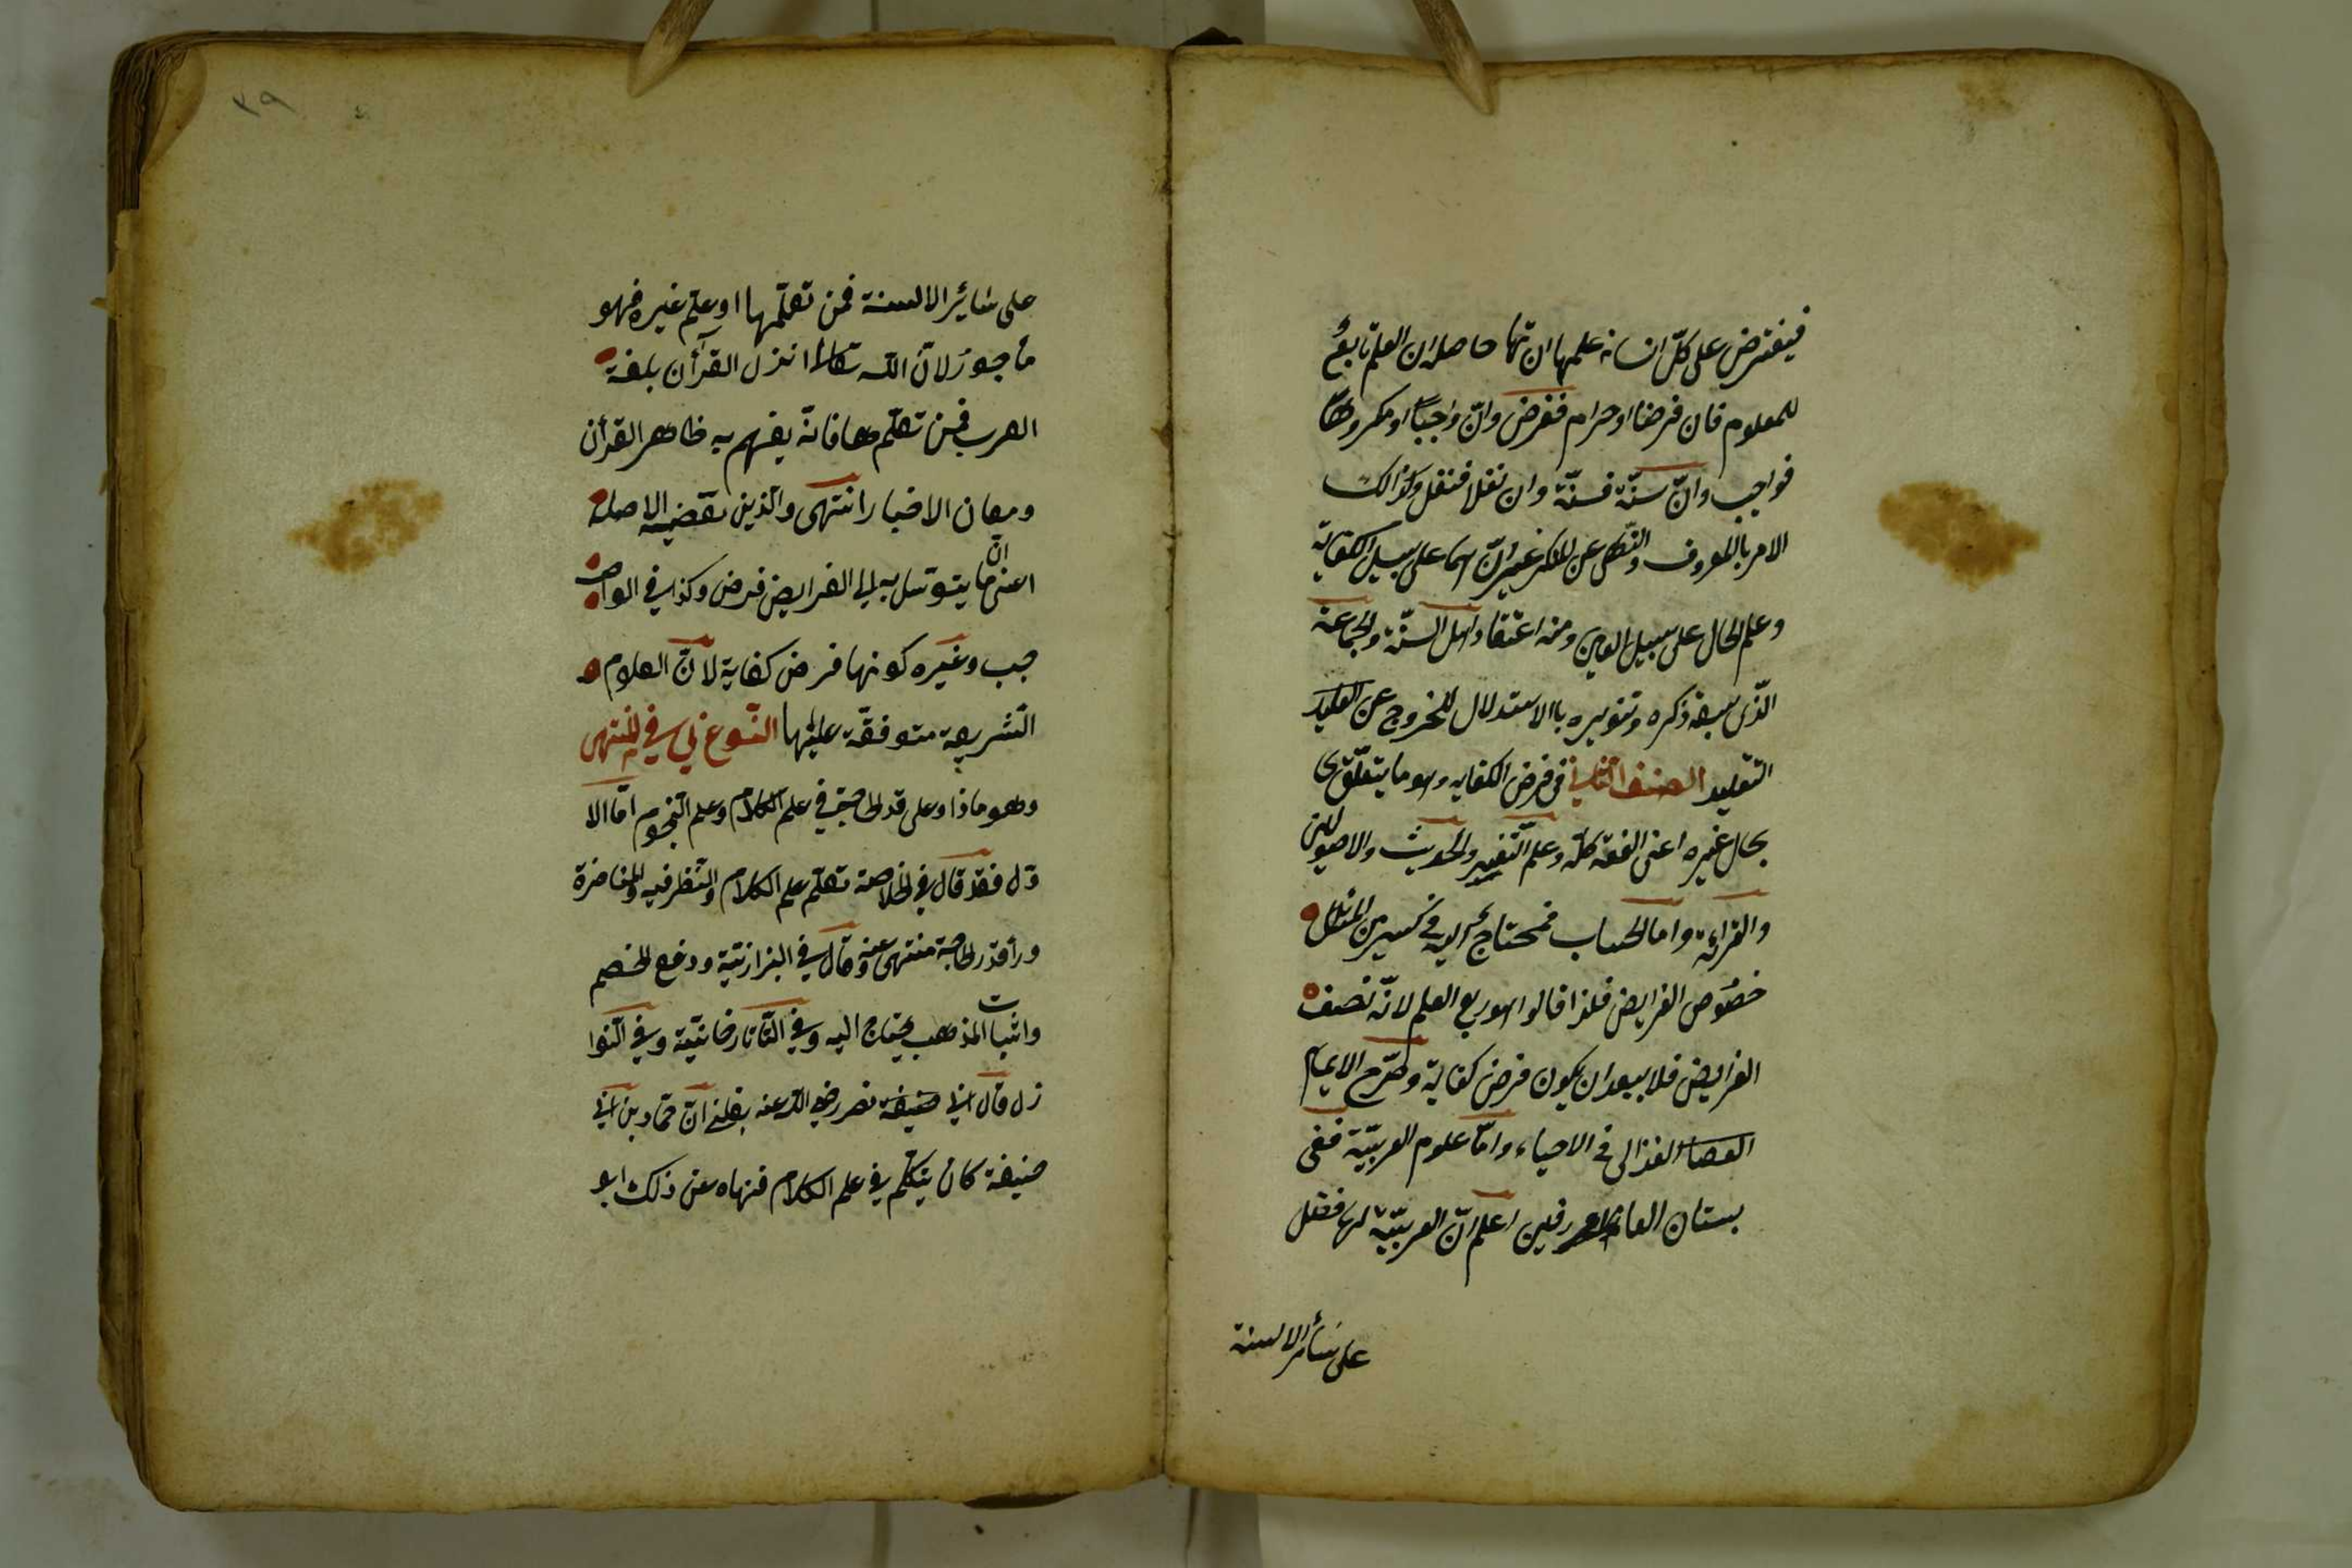 فيفترض على كلّ انسانه علمها ان تها حاصله ان العلم تابعٌ
للمعلوم فان فرضا او حرام ففرض وانّ واجبًا او مكروهًا
فواجب وانّ سنّة فسنّة وان نفلا فنفل وكذالك
الامر بالمعروف والنّهى عن المنكر غير انّ اسما على سبيل الكفاية
وعلم الحال على سبيل العين ومنه اعتقاد اهل السنّة والجماعة
الذّى سبق ذكره وتنويره باالاستدلال للخروج عن التقليد
التقليد الصنف الثانى فى فرض الكفايه وهو ما يتعلّق
بحال غيره اعنى الفقه كلّه وعلم التّفسير والحديث والاصولين
والقرائة واما الحساب فمحتاج اليه فى كثير من المسائل
خصُوص الفرايض فلذا قالوا هو ربع العلم لانّه نصف
الفرايض فلا يبعد ان يكون فرض كفاية وصرّح الايمام
الغذالى فى الاحياء وامّا علوم العربيّة ففى
بستان العارفين اعلم انّ العربيّة لها فضل
على سأئر الالسنة
٣٩
على سَائِر الالسنة فمن تعلّمها او علّم غيره فهو
مأجورٌ لانّ اللّه تعالى انزل القرآن بلغة
العرب فمن تعلّمها فانّه يفهم به ظاهر القرأن
ومعان الاخبار انتهى والّذين يقضيه الاصل
اعنى انّ ما يتوسّل به الى الفرايض فرض وكذا فى الواجب
جب وغيره كونها فرض كفاية لانّ العلوم
الشّريعة متوفقّة عليها النّوع ثانى فى المنتهى
وهو ماذا وعلى قدر الحاجة فى علم الكلام وعلم النّجوم امّا الا
وّل فقد قال فى الخلاصة تعلّم علم الكلام والنّظر فيه والمناضرة
ورأ قدر الحاجة منتهى عنه وقال فى البزازيّة ودفع الخصم
واثبات المذهب يحتاج اليه وفى التّاتارخانيّة وفى النّوا
زل قال ابى حنيفة نصر رضى اللّه عنه بلغنى انّ حمّاد بن ابى
حنيفة كان يتكلّم فى علم الكلام فنهاه عن ذلك ابو